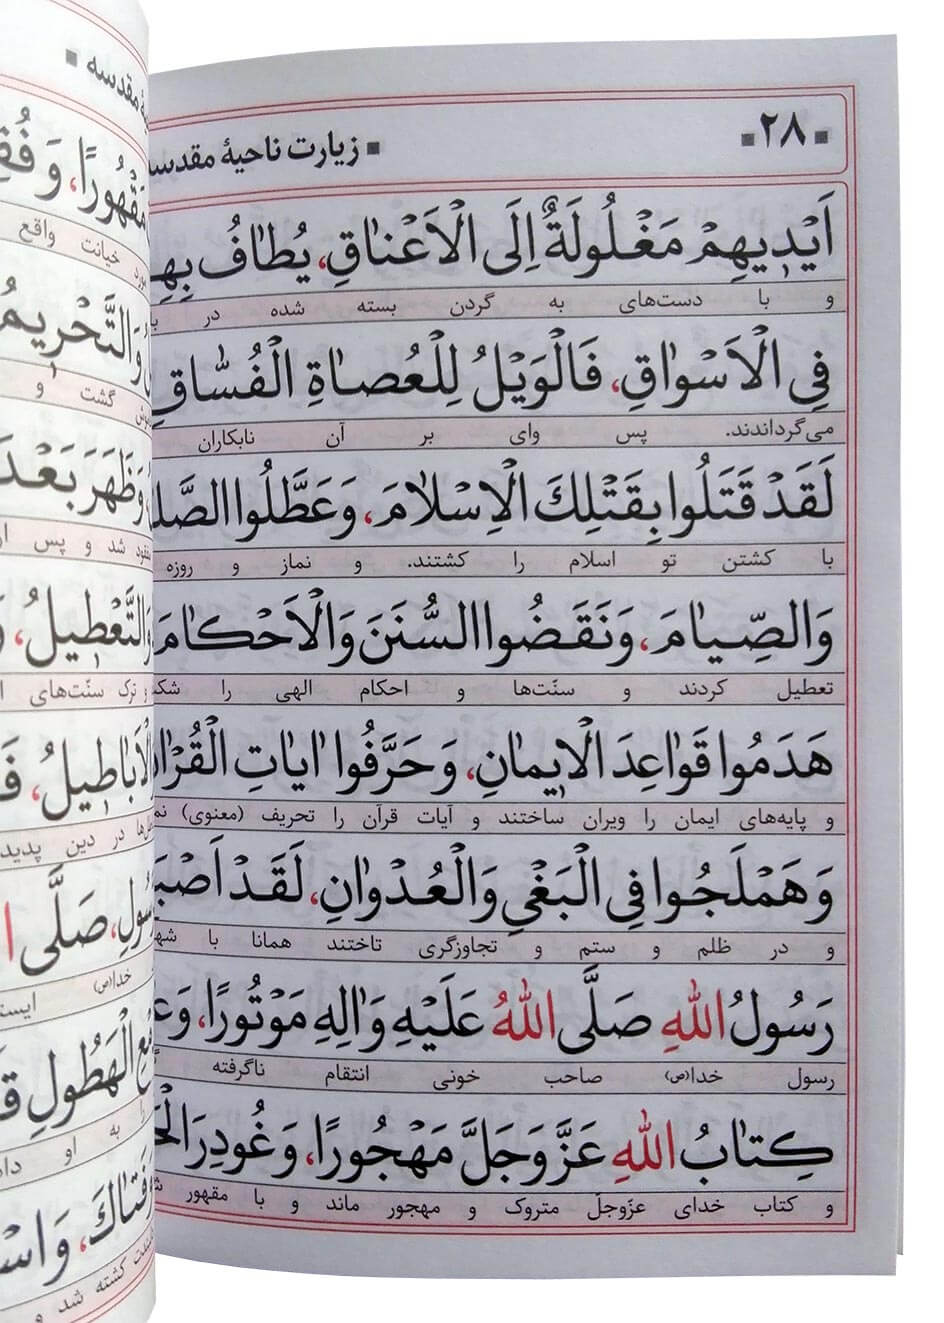 ▪ ۲۸ ▪
▪ زیارت ناحیهٔ مقدسه
اَیْدیهِمْ مَغْلُولَةٌ اِلَی الْاَعْناقِ، یُطافُ بِهِمْ
و با دست‌های به گردن بسته شده در
فِی الْاَسْواقِ، فَالْوَیْلُ لِلْعُصاةِ الْفُسّاقِ
می‌گرداندند. پس وای بر آن نابکاران
لَقَدْ قَتَلُوا بِقَتْلِكَ الْاِسْلامَ، وَ عَطَّلُوا
با کشتن تو اسلام را کشتند. و نماز و روزه
وَالصِّیامَ، وَ نَقَضُوا السُّنَنَ وَالْاَحْكامَ
تعطیل کردند و سنّت‌ها و احکام الهی را
هَدَمُوا قَواعِدَ الْایمانِ، وَ حَرَّفُوا ایاتِ الْقُرْانِ
و پایه‌های ایمان را ویران ساختند و آیات قرآن را تحریف (معنوی)
وَ هَمْلَجُوا فِی الْبَغْیِ وَالْعُدْوانِ، لَقَدْ
و در ظلم و ستم و تجاوزگری تاختند همانا با
رَسُولُ اللهِ صَلَّی اللهُ عَلَیْهِ وَالِهِ مَوْتُورًا،
رسول خدا(ص) صاحب خونی انتقام ناگرفته
كِتابُ اللهِ عَزَّوَجَلَّ مَهْجُورًا، وَ غُودِرَ
و کتاب خدای عزّوجلّ متروک و مهجور ماند و با مقهور
مقدسه ▪
مَقْهُورًا،
خیانت واقع
وَالتَّحْریمُ
گشت و
وَ ظَهَرَ بَعْدَ
شد و پس
وَالتَّعْطیلُ،
و ترک سنّت‌های
الْاَباطیلُ،
در دین پدید
صَلَّی
خدا(ص)
الْهَطُولِ
به او
کشته شد و